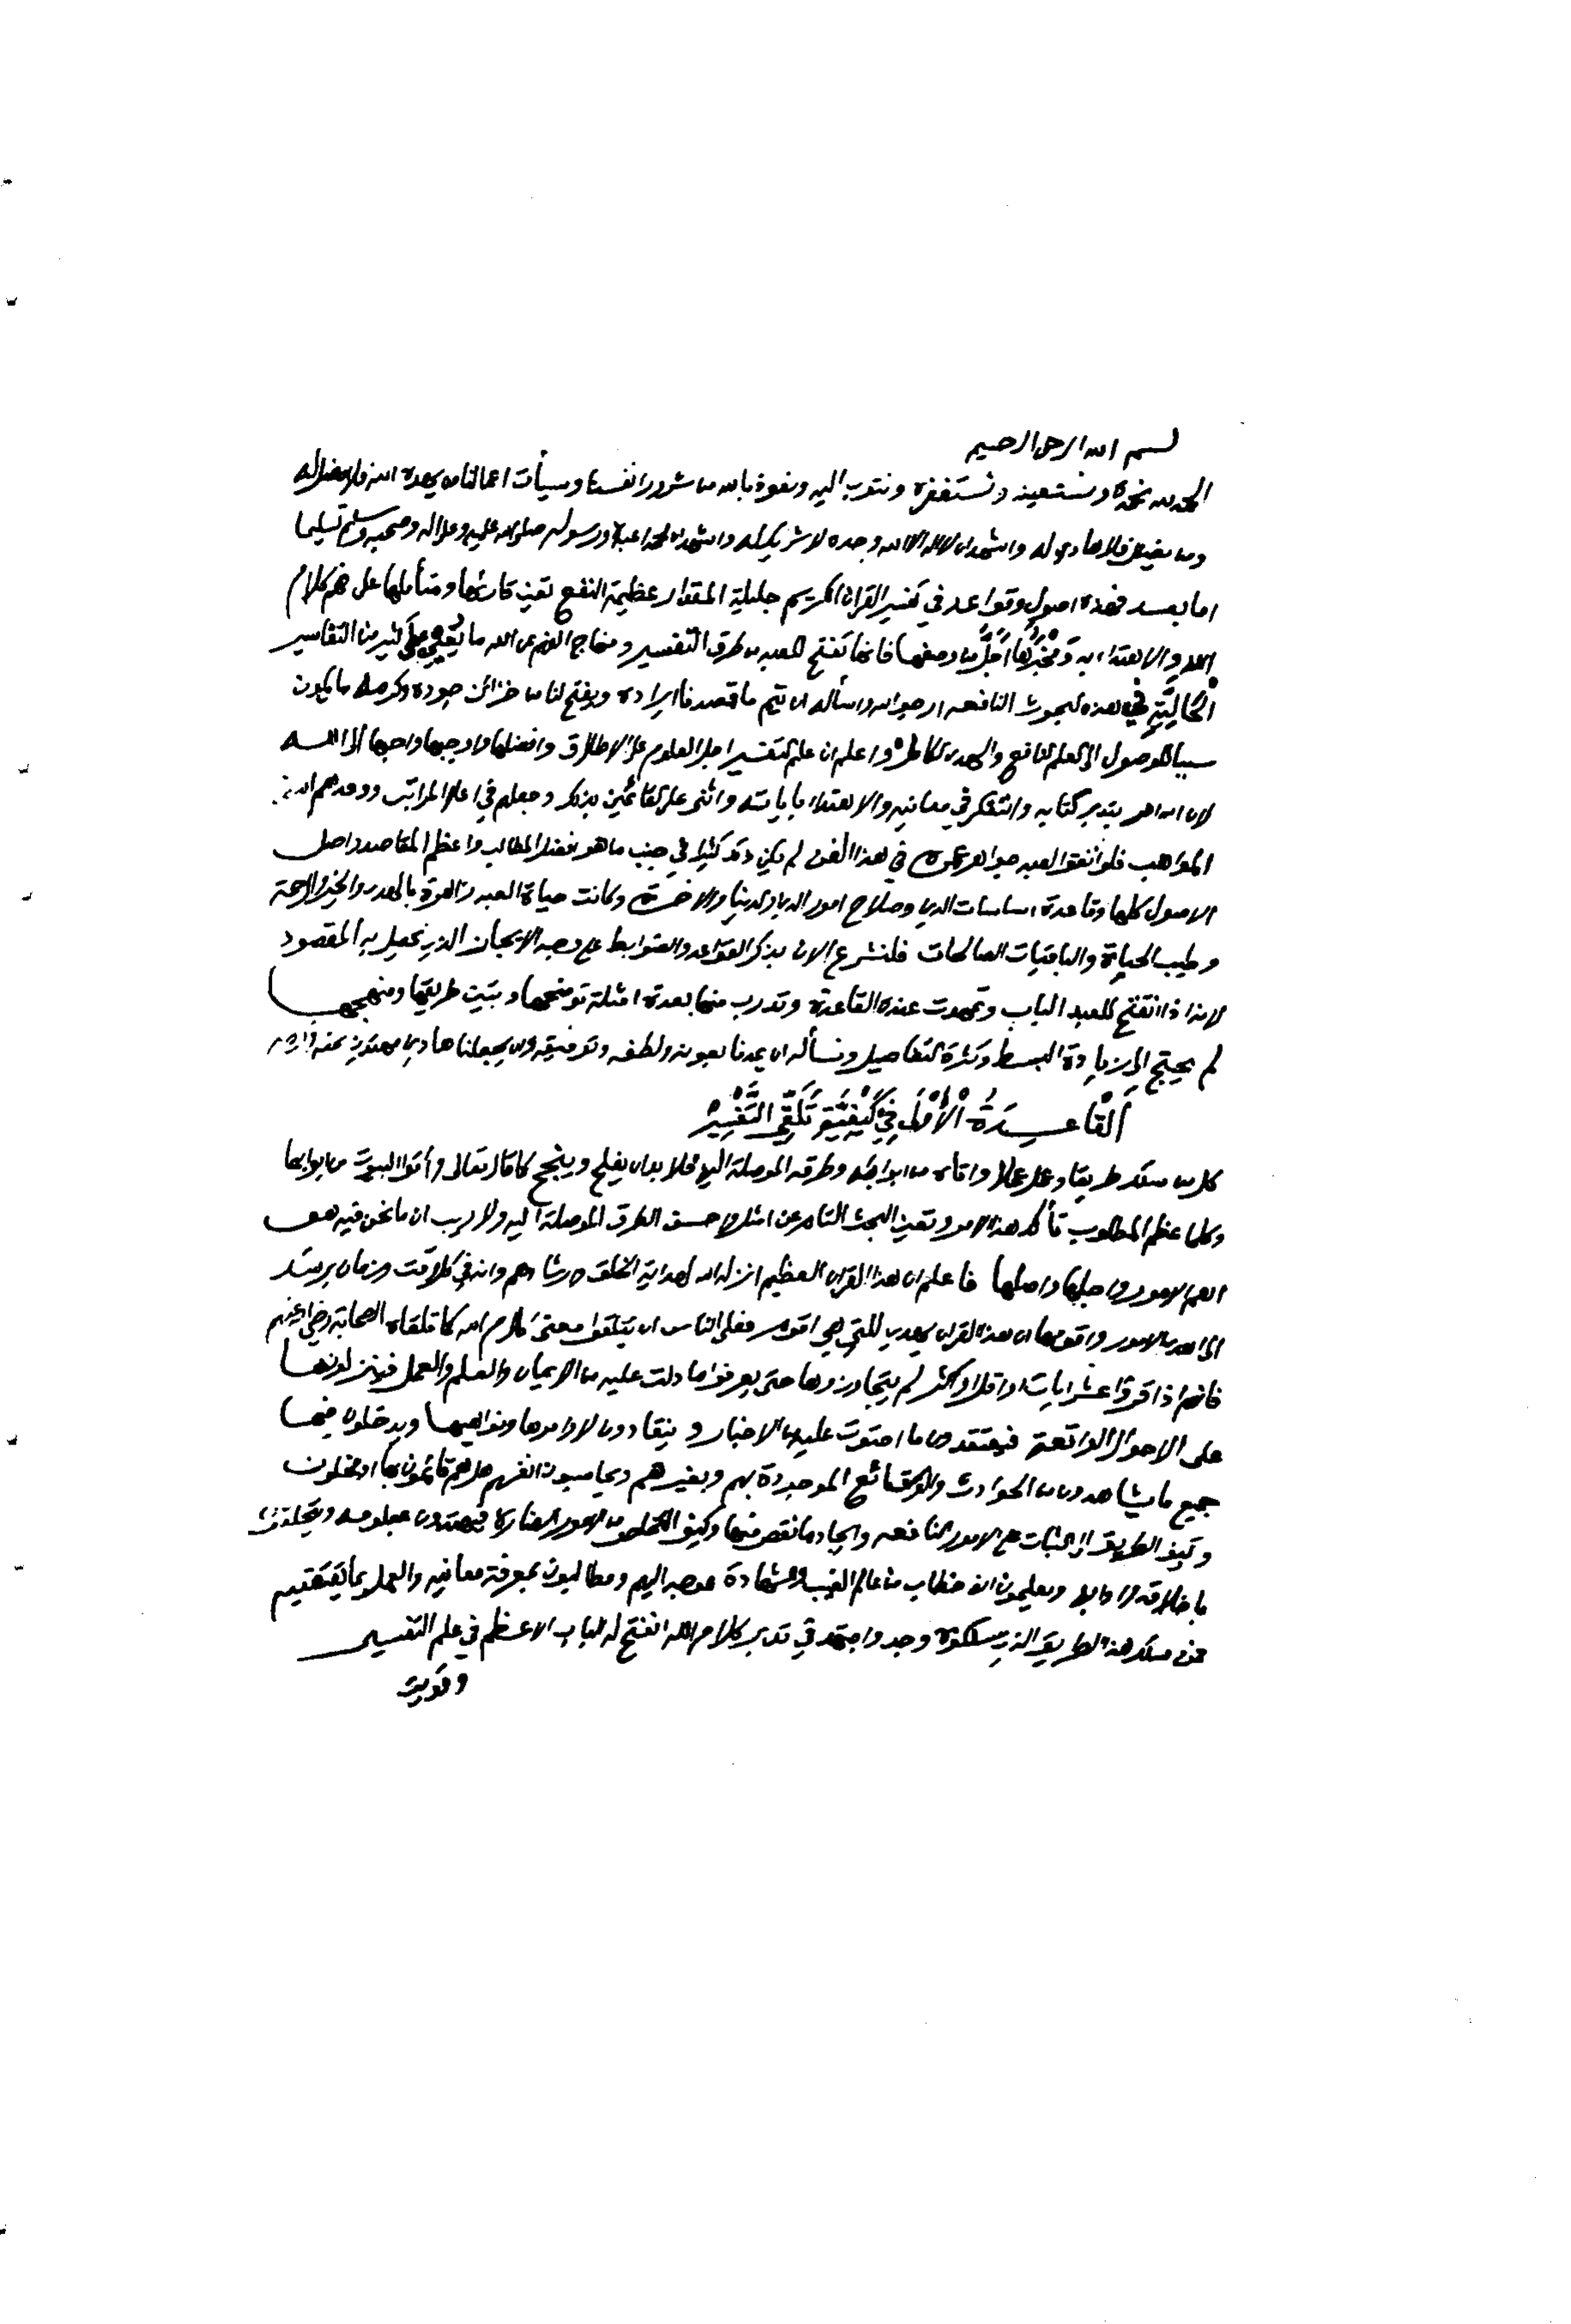 بسم الله الرحمن الرحيم
الحمد لله نحمده ونستعينه ونستغفره ونتوب اليه ونعوذ بالله من شرور انفسنا وسيأت اعمالنا من يهده الله فلا مضل له
ومن يضلل فلا هادي له واشهد ان لا اله الا الله وحده لا شريك له واشهد ان محمدا عبده ورسوله صلى الله عليه وعلى اله وصحبه وسلم تسليما
اما بعد فهذه اصول وقواعد في تفسير القران الكريم جليلة المقدار عظيمة النفع تعين قارئها ومتأملها على فهم كلام
الله والاهتداء به ومخبرها اجل من وصفها فانها تفتح للعبد من طرق التفسير ومنهاج الفهم عن الله ما يغني عن كثير من التفاسير
الخالية في هذه البحوث النافعه ارجو الله واسأله ان يتم ما قصدنا ايراده ويفتح لنا من خزائن جوده وكرمه ما يكون
سببا للوصول الى العلم النافع والهدى الكامل واعلم ان علم التفسير اجل العلوم على الاطلاق وافضلها واوجبها واحبها الى الله
لان الله امر بتدبر كتابه والتفكر في معانيه والاهتداء باياته واثنى على القائمين بذلك وجعلهم في اعلا المراتب ووعدهم اسنى
المواهب فلو انفق العبد جواهر عمره في هذا الفن لم يكن ذلك كثيرا في جنب ما هو افضل المطالب واعظم المقاصد واصل
الاصول كلها وقاعدة اساسات الدين وصلاح امور الدين والدنيا والاخرة وكانت حياة العبد زاهرة بالهدى والخير والرحمة
وطيب الحياة والباقيات الصالحات فلنشرع الان بذكر القواعد والضوابط على وجه الايجاز الذي يحصل به المقصود
لانه اذا انفتح للعبد الباب وتمهدت عنده القاعدة وتدرب منها بعدة امثلة توضحها وتبين طريقها ومنهجها
لم يحتج الى زيادة البسط وكثرة التفاصيل ونسأله ان يمدنا بعونه ولطفه وتوفيقه وان يجعلنا هادين مهتدين بمنه
القاعدة الأولى في كيفية تلقي التفسير
كل من سلك طريقا وعمل عملا واتاه من ابوابه وطرقه الموصلة اليه فلا بد ان يفلح وينجح كما قال تعالى وأتوا البيوت من ابوابها
وكلما عظم المطلوب تأكد هذا الامر وتعين البحث التام عن امثل واحسن الطرق الموصلة اليه ولا ريب ان ما نحن فيه هو
اهم الامور واجلها واصلها فاعلم ان هذا القران العظيم انزله الله لهداية الخلق وارشادهم وانه في كل وقت وزمان يرشد
الى اهدى الامور واقومها ان هذا القران يهدي للتي هي اقوم فعلى الناس ان يتلقوا معنى كلام الله كما تلقاه الصحابة رضي الله عنهم
فانهم اذا قروا عشر ايات او اقل او اكثر لم يتجاوزوها حتى يعرفوا ما دلت عليه من الايمان والعلم والعمل فينزلونها
على الاحوال الواقعة فيعتقدون ما احتوت عليه من الاخبار وينقادون لاوامرها ونواهيها ويدخلون فيها
جميع ما يشاهدون من الحوادث والوقائع الموجودة بهم وبغيرهم ويحاسبون انفسهم هل هم قائمون بها او مخلون
وكيف الطريق الى الثبات على الامور النافعه وايجاد ما نقص منها وكيف التخلص من الامور الضارة فيهتدون بعلومه ويتخلقون
باخلاقه وادابه ويعلمون انه خطاب من عالم الغيب والشهادة موجه اليهم ومطالبون بمعرفة معانيه والعمل بما يقتضيه
فمن سلك هذا الطريق الذي سلكوه وجد واجتهد في تدبر كلام الله انفتح له الباب الاعظم في علم التفسير
وقويت